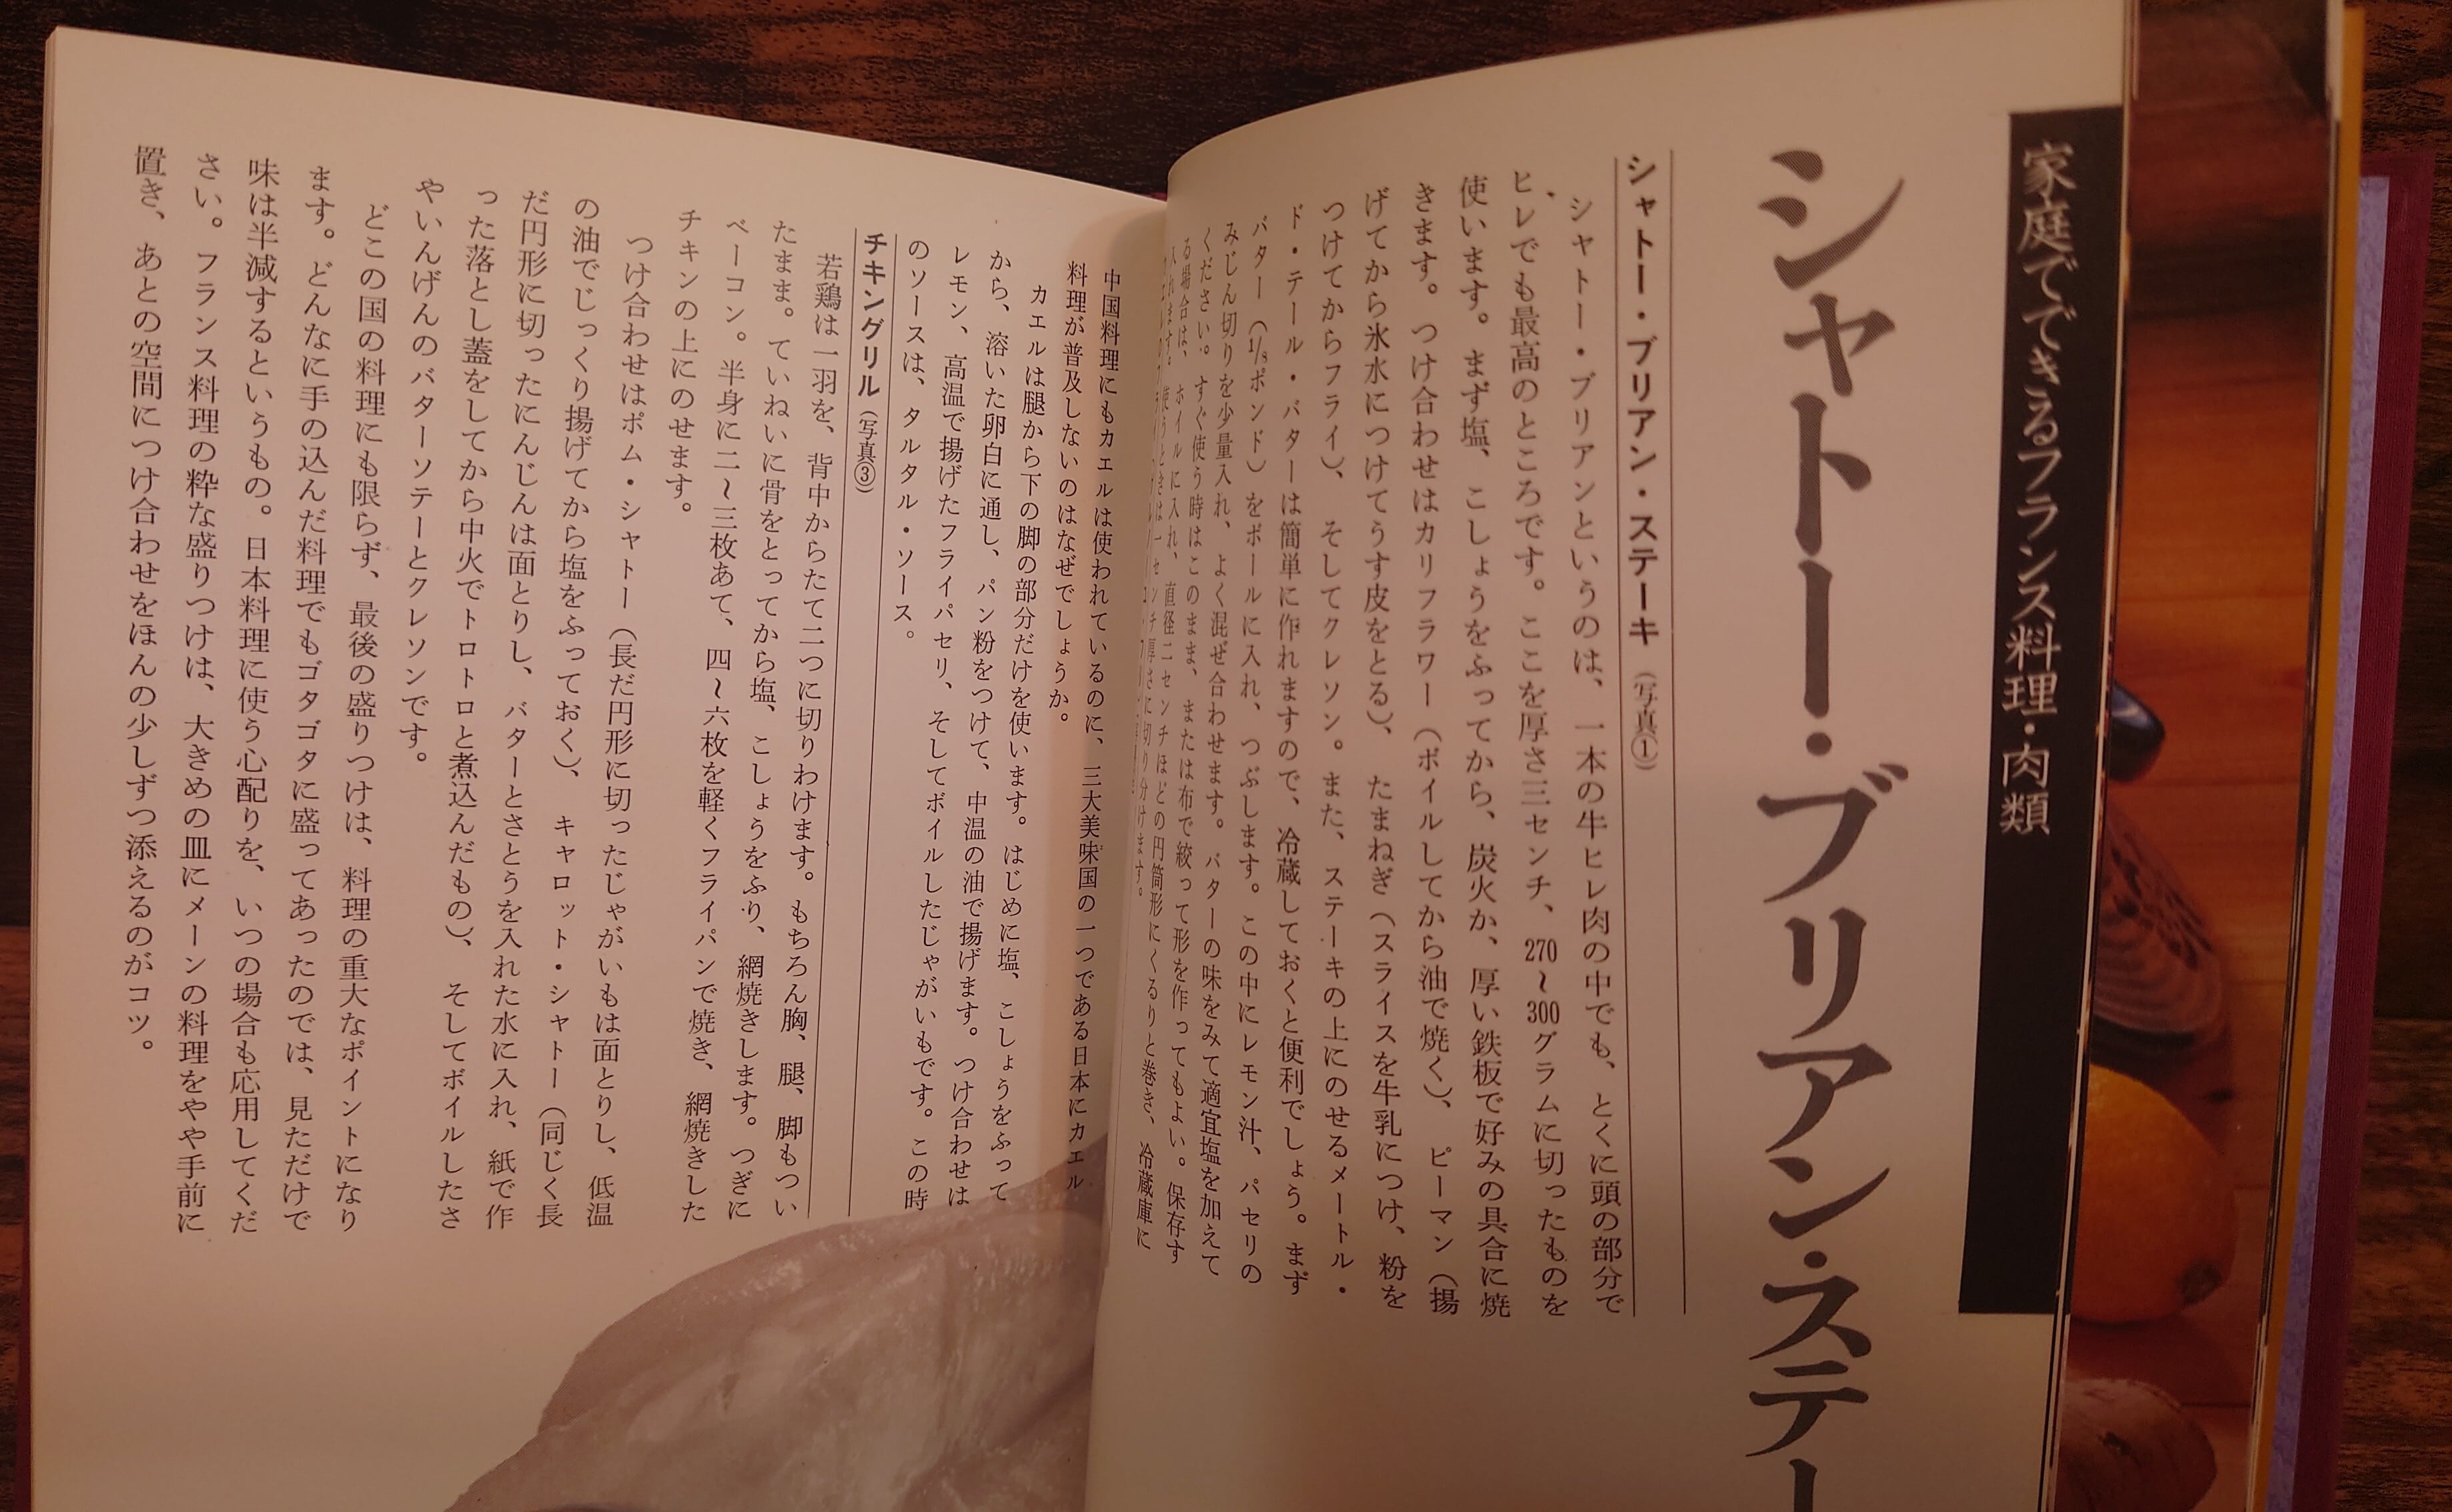 家庭でできるフランス料理・肉類
シャトー・ブリアン・ステー
シャトー・ブリアン・ステーキ（写真①）
シャトー・ブリアンというのは、一本の牛ヒレ肉の中でも、とくに頭の部分で、
ヒレでも最高のところです。ここを厚さ三センチ、270〜300グラムに切ったものを
使います。まず塩、こしょうをふってから、炭火か、厚い鉄板で好みの具合に焼
きます。つけ合わせはカリフラワー（ボイルしてから油で焼く）、ピーマン（揚
げてから氷水につけてうす皮をとる）、たまねぎ（スライスを牛乳につけ、粉を
つけてからフライ）、そしてクレソン。また、ステーキの上にのせるメートル・
ド・テール・バターは簡単に作れますので、冷蔵しておくと便利でしょう。まず
バター（1/8ポンド）をボールに入れ、つぶします。この中にレモン汁、パセリの
みじん切りを少量入れ、よく混ぜ合わせます。バターの味をみて適宜塩を加えて
ください。すぐ使う時はこのまま、または布で絞って形を作ってもよい。保存す
る場合は、ホイルに入れ、直径二センチほどの円筒形にくるりと巻き、冷蔵庫に
入れます。使うときは一センチ厚さに切り分けます。
中国料理にもカエルは使われているのに、三大美味国の一つである日本にカエル
料理が普及しないのはなぜでしょうか。
カエルは腿から下の脚の部分だけを使います。はじめに塩、こしょうをふって
から、溶いた卵白に通し、パン粉をつけて、中温の油で揚げます。つけ合わせは
レモン、高温で揚げたフライパセリ、そしてボイルしたじゃがいもです。この時
のソースは、タルタル・ソース。
チキングリル（写真③）
若鶏は一羽を、背中からたて二つに切りわけます。もちろん胸、腿、脚もつい
たまま。ていねいに骨をとってから塩、こしょうをふり、網焼きします。つぎに
ベーコン。半身に二〜三枚あて、四〜六枚を軽くフライパンで焼き、網焼きした
チキンの上にのせます。
つけ合わせはポム・シャトー（長だ円形に切ったじゃがいもは面とりし、低温
の油でじっくり揚げてから塩をふっておく）、キャロット・シャトー（同じく長
だ円形に切ったにんじんは面とりし、バターとさとうを入れた水に入れ、紙で作
った落とし蓋をしてから中火でトロトロと煮込んだもの）、そしてボイルしたさ
やいんげんのバターソテーとクレソンです。
どこの国の料理にも限らず、最後の盛りつけは、料理の重大なポイントになり
ます。どんなに手の込んだ料理でもゴタゴタに盛ってあったのでは、見ただけで
味は半減するというもの。日本料理に使う心配りを、いつの場合も応用してくだ
さい。フランス料理の粋な盛りつけは、大きめの皿にメーンの料理をやや手前に
置き、あとの空間につけ合わせをほんの少しずつ添えるのがコツ。